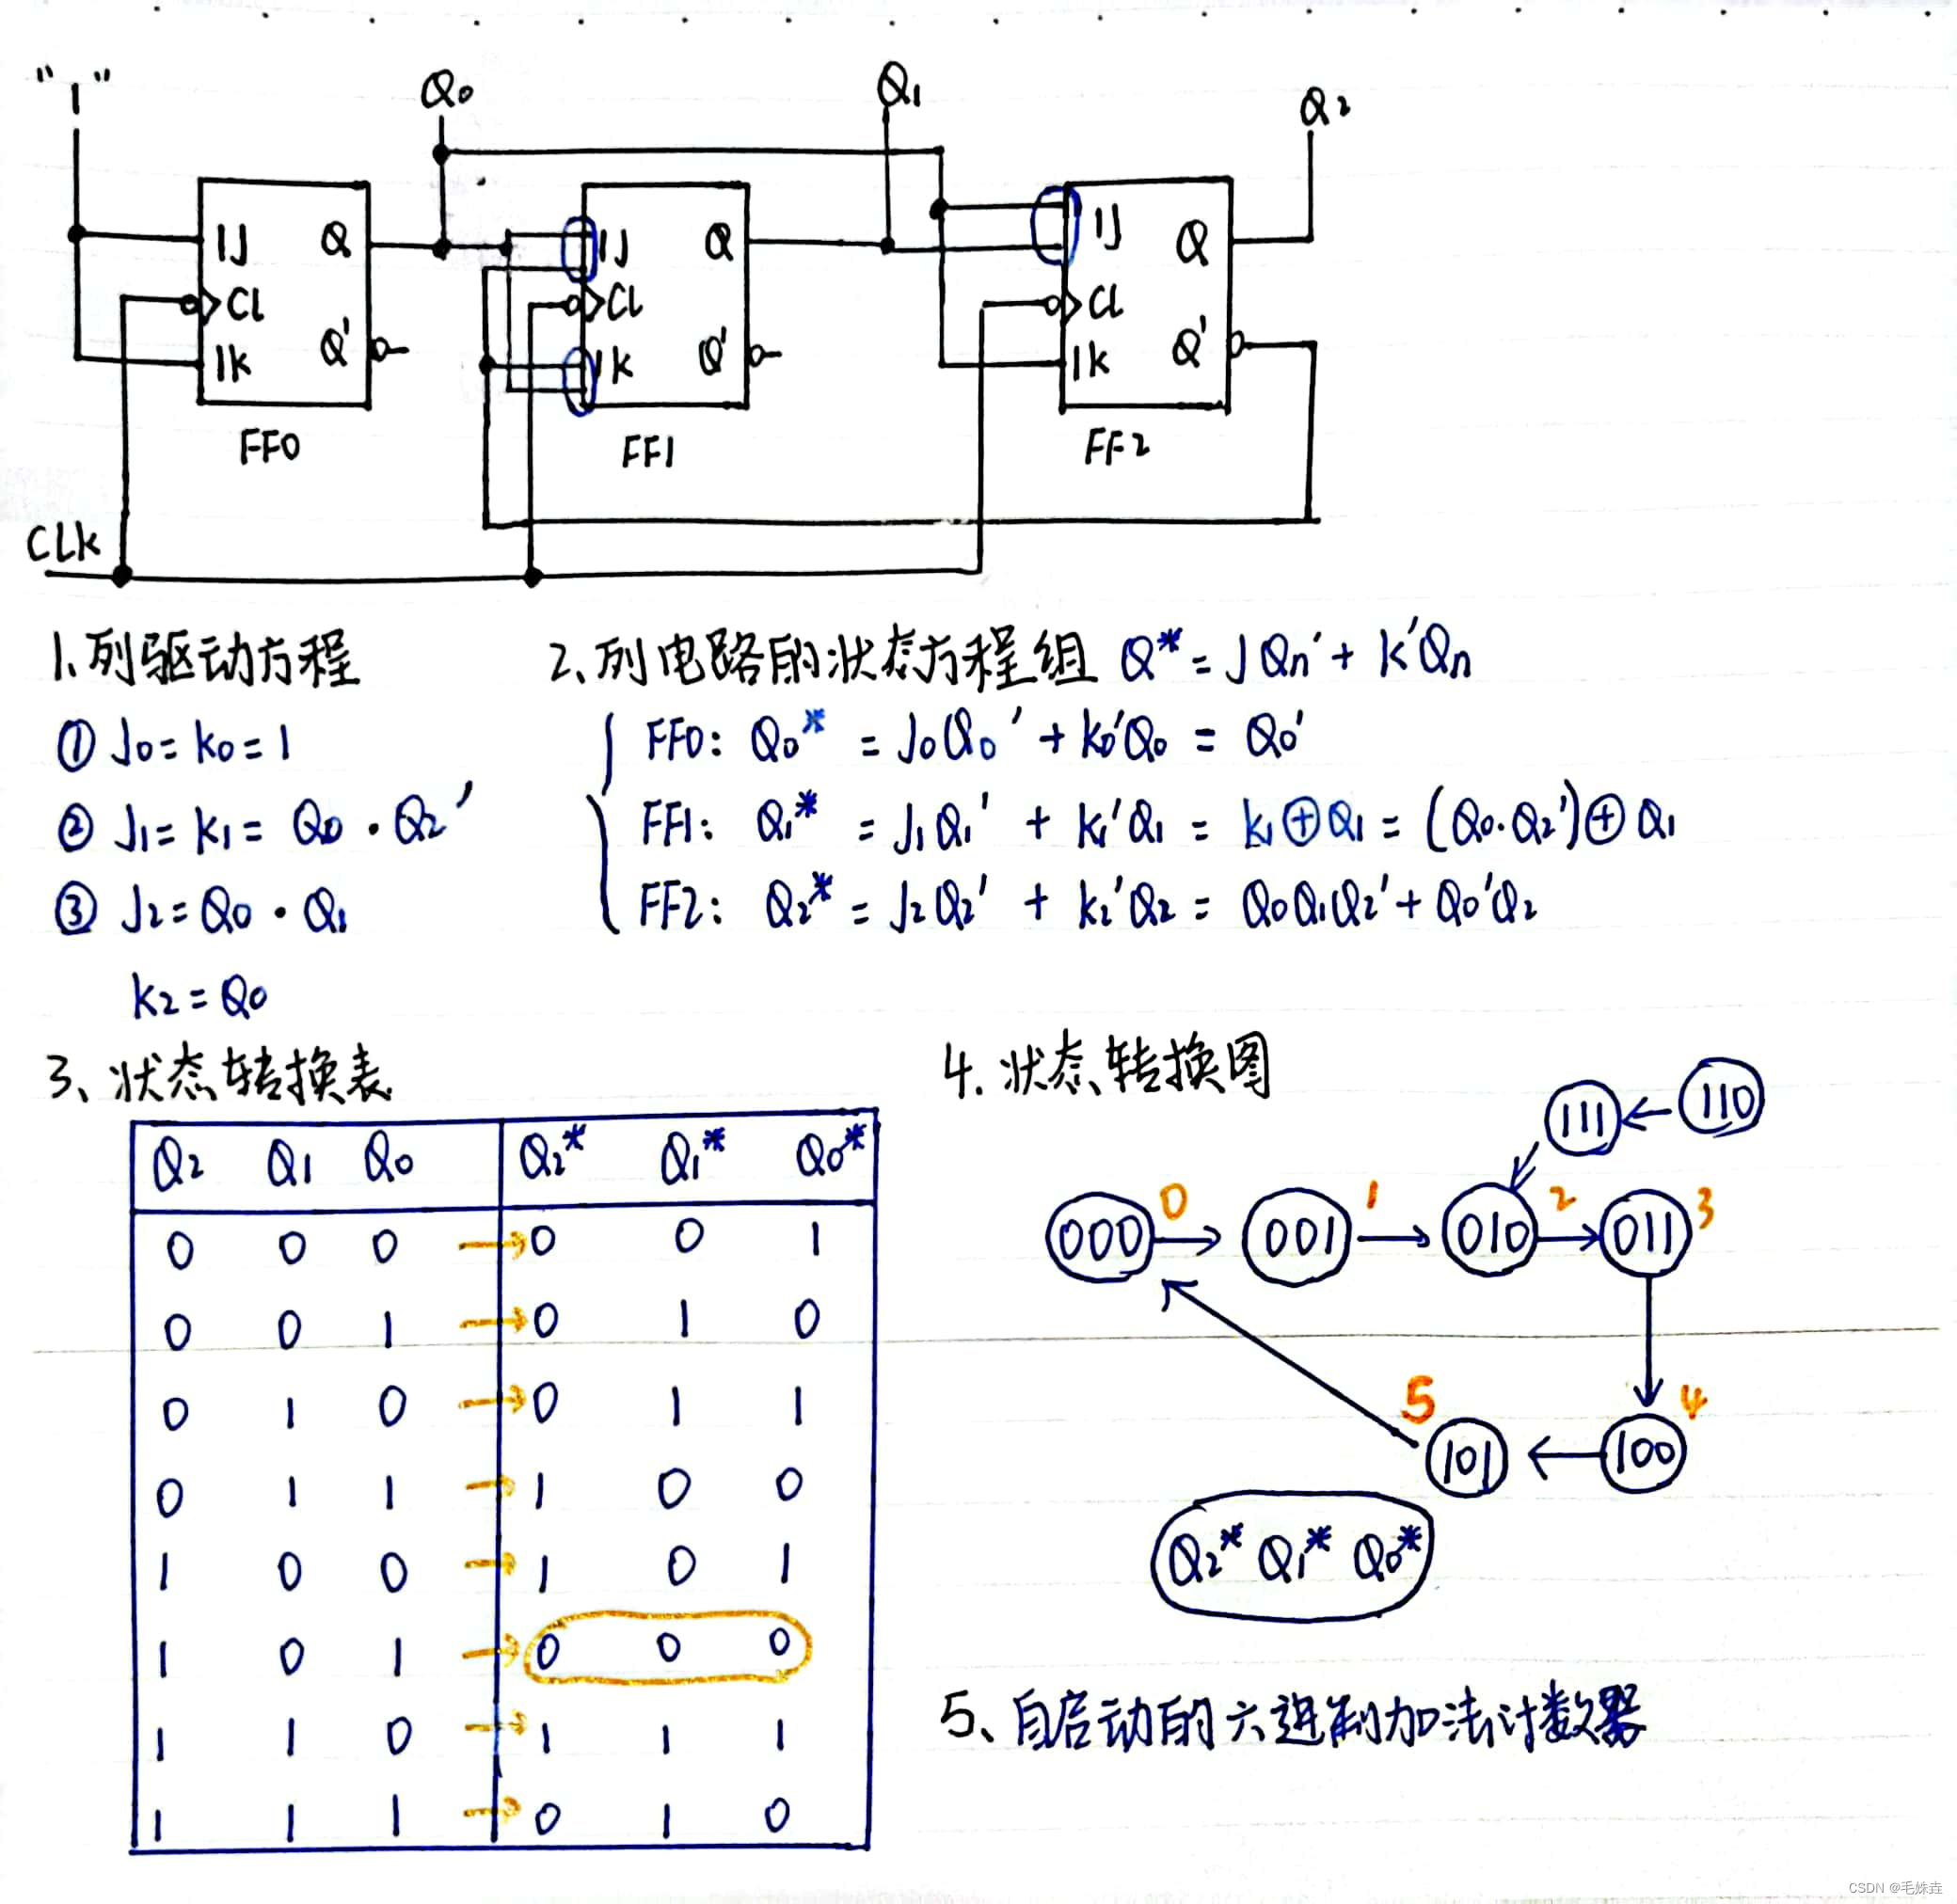 "1"
Q0
Q1
Q2
1J Q
C1
1K Q'
FF0
1J Q
C1
1K Q'
FF1
1J Q
C1
1K Q'
FF2
CLK
1、列驱动方程
① J0=K0=1
② J1=K1= Q0·Q2'
③ J2=Q0·Q1
K2=Q0
2、列电路的状态方程组 Q*=JQn'+K'Qn
FF0: Q0* = J0Q0' + K0'Q0 = Q0'
FF1: Q1* = J1Q1' + K1'Q1 = K1⊕Q1 = (Q0·Q2')⊕Q1
FF2: Q2* = J2Q2' + K2'Q2 = Q0Q1Q2' + Q0'Q2
3、状态转换表
Q2 Q1 Q0 Q2* Q1* Q0*
0 0 0 → 0 0 1
0 0 1 → 0 1 0
0 1 0 → 0 1 1
0 1 1 → 1 0 0
1 0 0 → 1 0 1
1 0 1 → 0 0 0
1 1 0 → 1 1 1
1 1 1 → 0 1 0
4、状态转换图
111 ← 110
000 0 → 001 1 → 010 2 → 011 3
5 4
101 ← 100
Q2* Q1* Q0*
5、自启动的六进制加法计数器
CSDN @毛姝垚